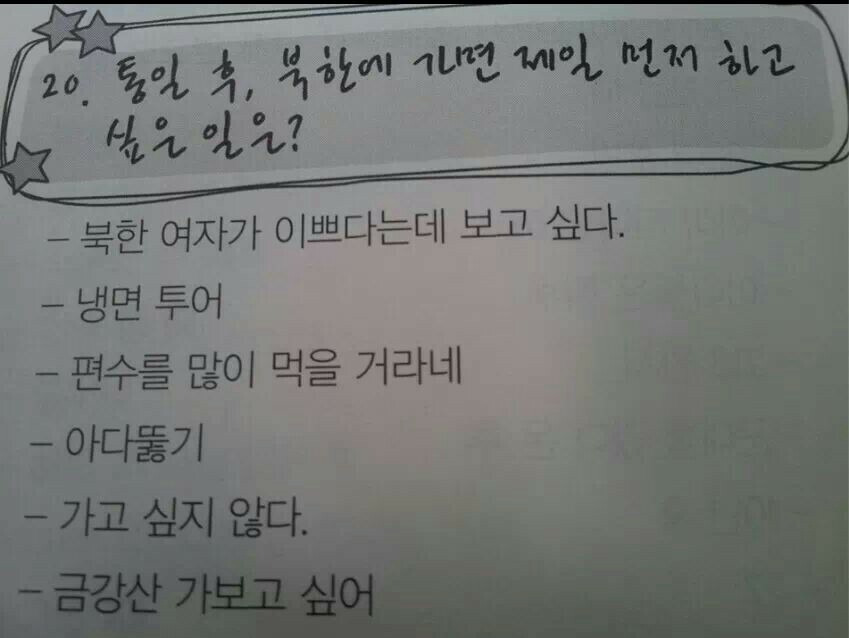 20. 통일 후, 북한에 가면 제일 먼저 하고
싶은 일은?
– 북한 여자가 이쁘다는데 보고 싶다.
– 냉면 투어
– 편수를 많이 먹을 거라네
– 아다뚫기
– 가고 싶지 않다.
– 금강산 가보고 싶어